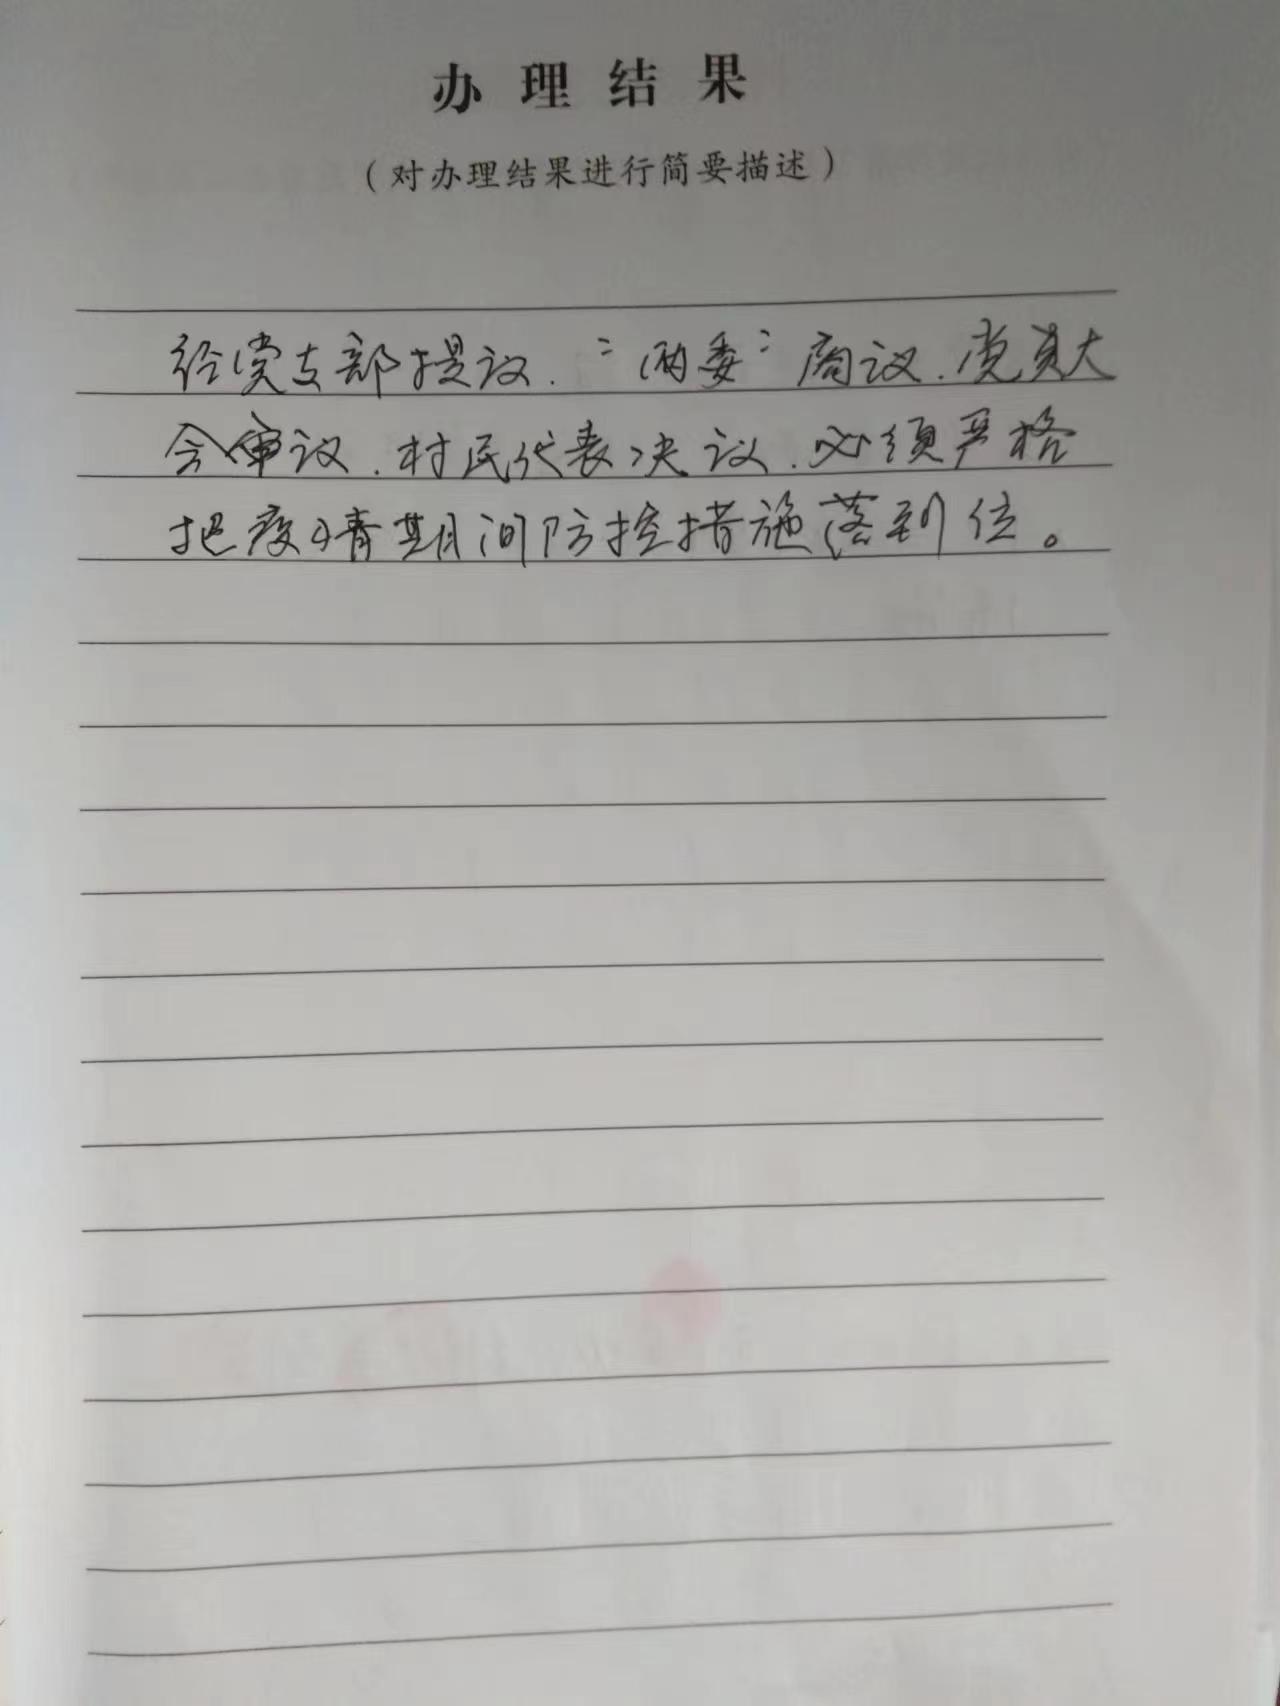 办理结果
（对办理结果进行简要描述）
经党支部提议、“两委”商议、党员大
会审议、村民代表决议、必须严格
把疫情期间防控措施落到位。